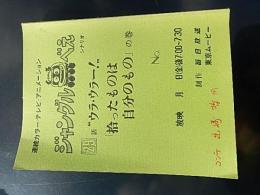 連続カラーテレビアニメーション
ジャングル黒べえ
シナリオ
話 "ウラ・ウラー!"
拾ったものは
自分のもの」の巻
No.
放映 月 日(金)後7:00~7:30
制作 毎日放送
東京ムービー